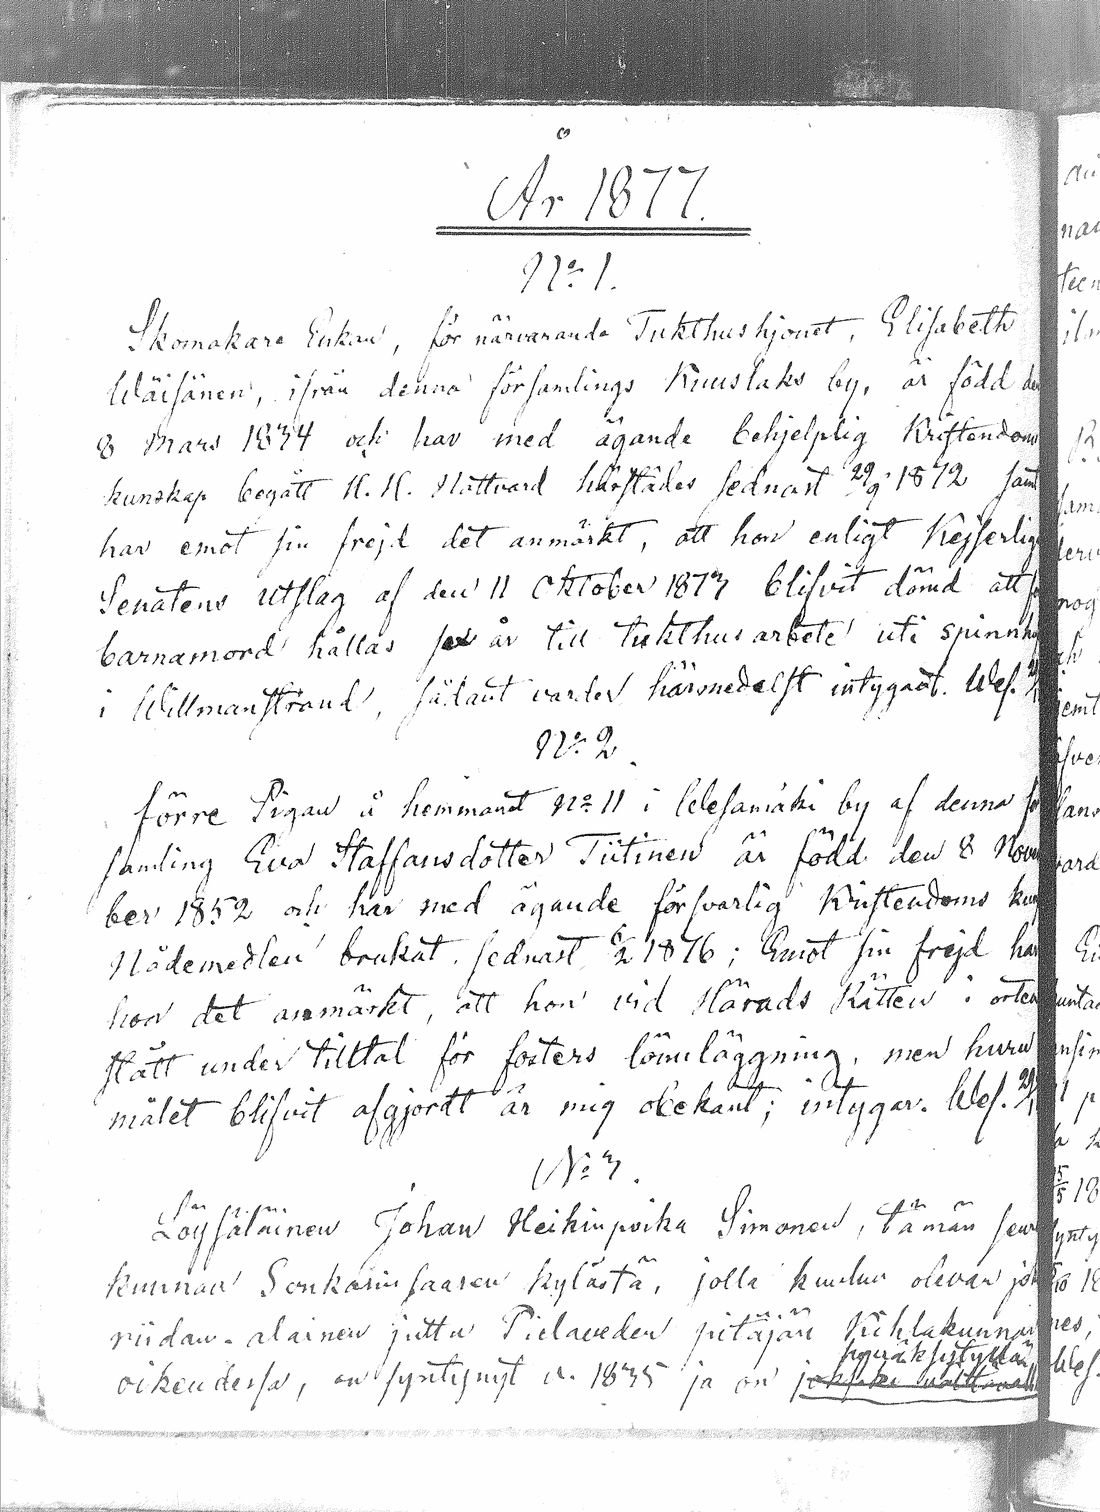 År 1877.
No 1.
Skomakare Enkan, för närvarande Tukthushjonet, Elisabeth
Wäisänen, ifrån denna församlings Kuuslaks by, är född den
8 Mars 1834 och har med ägande behjelplig Kristendoms
kunskap begått H. H. Nattvard härstädes sednast 29/9 1872 samt
har emot sin frejd det anmärkt, att hon enligt Kejserliga
Senatens utslag af den 11 Oktober 1873 blifvit dömd att för
barnamord hållas sex år till tukthus arbete uti spinnhu
i Willmanstrand, sålunt varder härmedelst intygadt. Wes.
No 2.
Förre Pigan å hemmanet No 11 i Wesamäki by af denna för
samling Eva Staffansdotter Tiitinen är född den 8 Novem
ber 1852 och har med ägande försvarlig Kristendoms kun
Nådemedlen brukat sednast 6/2 1876; Emot sin frejd har
hon det anmärkt, att hon vid Härads Rätten i orten
stått under tilltal för fosters lönnläggning, men huru
målet blifvit afgjordt är mig obekant; intygar. Wes.
No 3.
Löysäläinen Johan Heikinpoika Simonen, tämän seura
kunnan Sonkarinsaaren kylästä, jolla kuuluu olevan jo
riidan-alainen juttu Pielaveden pitäjän Kihlakunnan
oikeudessa, on syntynyt v. 1835 ja on